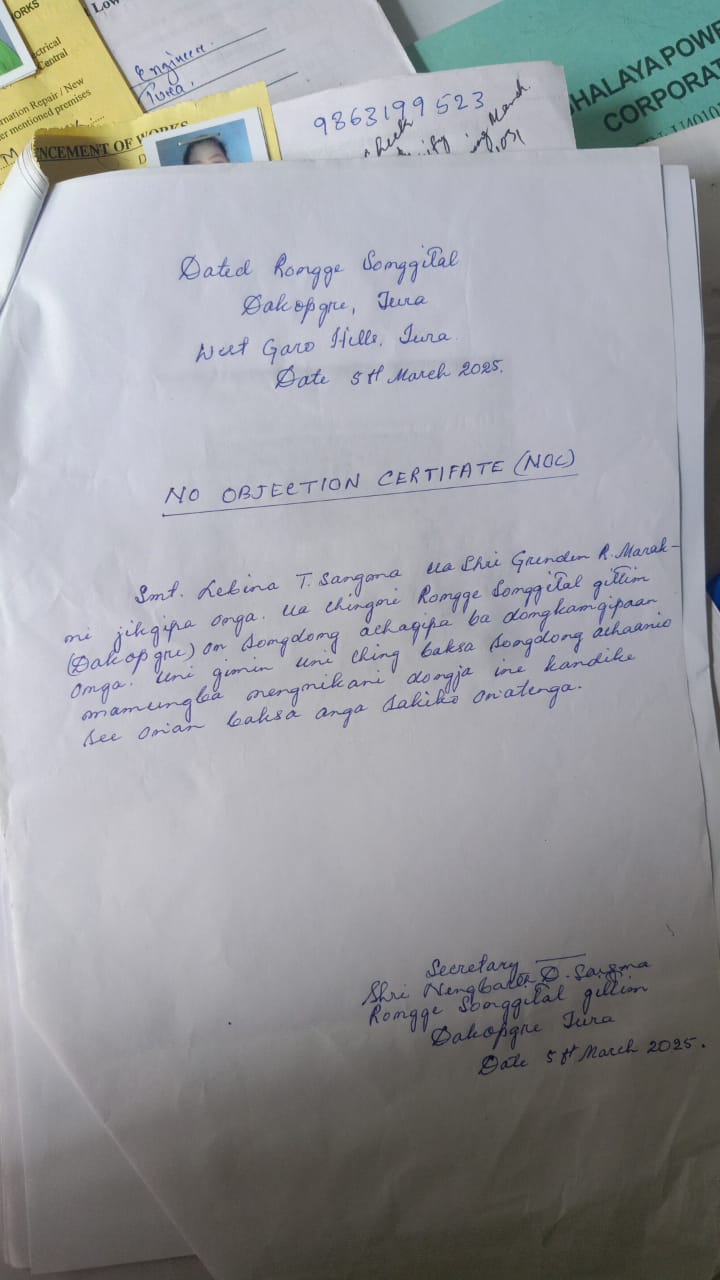 ORKS
ctrical
Central
rmation Repair / New
er mentioned premises
M
NCEMENT OF WORKS
D
Low
Engineer.
Tura,
9863199523
HALAYA POWE
CORPORAT
Dated Rongge Songgital
Dakopgre, Tura
West Garo Hills. Tura.
Date 5th March 2025.
NO OBJECTION CERTIFATE (NOC)
Smt. Lebina T. Sangma ua Shri Grenden R. Marak-
ni jikgipa onga. ua chingni Rongge Songgital gittim
(Dakopgre) on Songdong achagipa ba dongkamgipaan
onga. Uni gimin uni ching baksa Songdong achaanio
mamungba mengnikani dongja ine kandike
see on'an baksa anga sakiko on'atenga.
Secretary
Shri Nengbath D. Sangma
Rongge Songgital gittim
Dakopgre Tura
Date 5th March 2025.